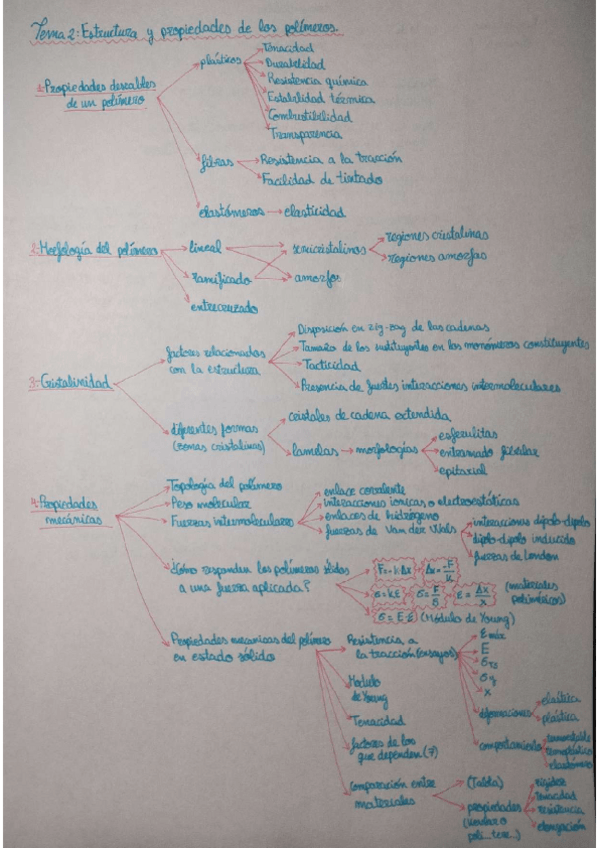 Tema 2: Estructura y propiedades de los polímeros.
1-Propiedades deseables
de un polímero
plásticos
Tonacidad
Durabilidad
Resistencia química
Estabilidad térmica
Combustibilidad
Transparencia
fibras
Resistencia a la tracción
Facilidad de tintado
elastómeros → elasticidad
2-Morfología del polímero
lineal
ramificado
entrecruzado
semicristalinos
amorfos
regiones cristalinas
regiones amorfas
3-Cristalinidad
factores relacionados
con la estructura
Disposición en zig-zag de las cadenas
Tamaño de los sustituyentes en los monómeros constituyentes
Tacticidad
Presencia de fuertes interacciones intermoleculares
diferentes formas
(zonas cristalinas)
cristales de cadena extendida
lamelas → morfologías
esferulitas
entramado fibrilar
epitaxial
4-Propiedades
mecánicas
Topología del polímero
Peso molecular
Fuerzas intermoleculares
enlace covalente
interacciones iónicas o electroestáticas
enlaces de hidrógeno
fuerzas de Van der Wals
interacciones dipolo-dipolo
dipolo-dipolo inducido
fuerzas de London
¿Cómo responden los polímeros sólidos
a una fuerza aplicada?
F=-k·Δx
Δx=-F/k
σ=kε
σ=F/S
ε=Δx/x
(materiales
poliméricos)
σ=E·ε (Módulo de Young)
Propiedades mecánicas del polímero
en estado sólido
Resistencia a
la tracción (ensayos)
ε máx
E
σTS
σy
x
deformaciones
elástica
plástica
comportamiento
termoestable
termoplástico
elastómero
Módulo
de Young
Tenacidad
factores de los
que dependen (7)
Comparación entre
materiales
(Tabla)
propiedades
(Kevlar o
rigidez
tenacidad
resistencia
elongación